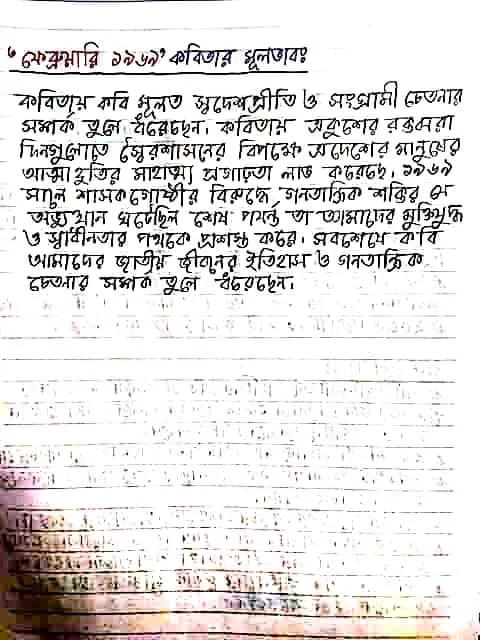 'ফেব্রুয়ারি ১৯৬৯' কবিতার মূলভাবঃ
কবিতায় কবি মূলত স্বদেশপ্রীতি ও সংগ্রামী চেতনার
সম্পর্ক তুলে ধরেছেন। কবিতায় একুশের রক্তঝরা
দিনগুলোতে স্বৈরশাসনের বিপক্ষে এদেশের মানুষের
আত্মাহুতির মাহাত্ম্য প্রগাঢ়তা লাভ করেছে। ১৯৬৯
সালে শাসকগোষ্ঠীর বিরুদ্ধে গনতান্ত্রিক শক্তির যে
অভ্যুত্থান ঘটেছিল শেষ পর্যন্ত তা আমাদের মুক্তিযুদ্ধ
ও স্বাধীনতার পথকে প্রশস্ত করে। সবশেষে কবি
আমাদের জাতীয় জীবনের ইতিহাস ও গনতান্ত্রিক
চেতনার সম্পর্ক তুলে ধরেছেন।